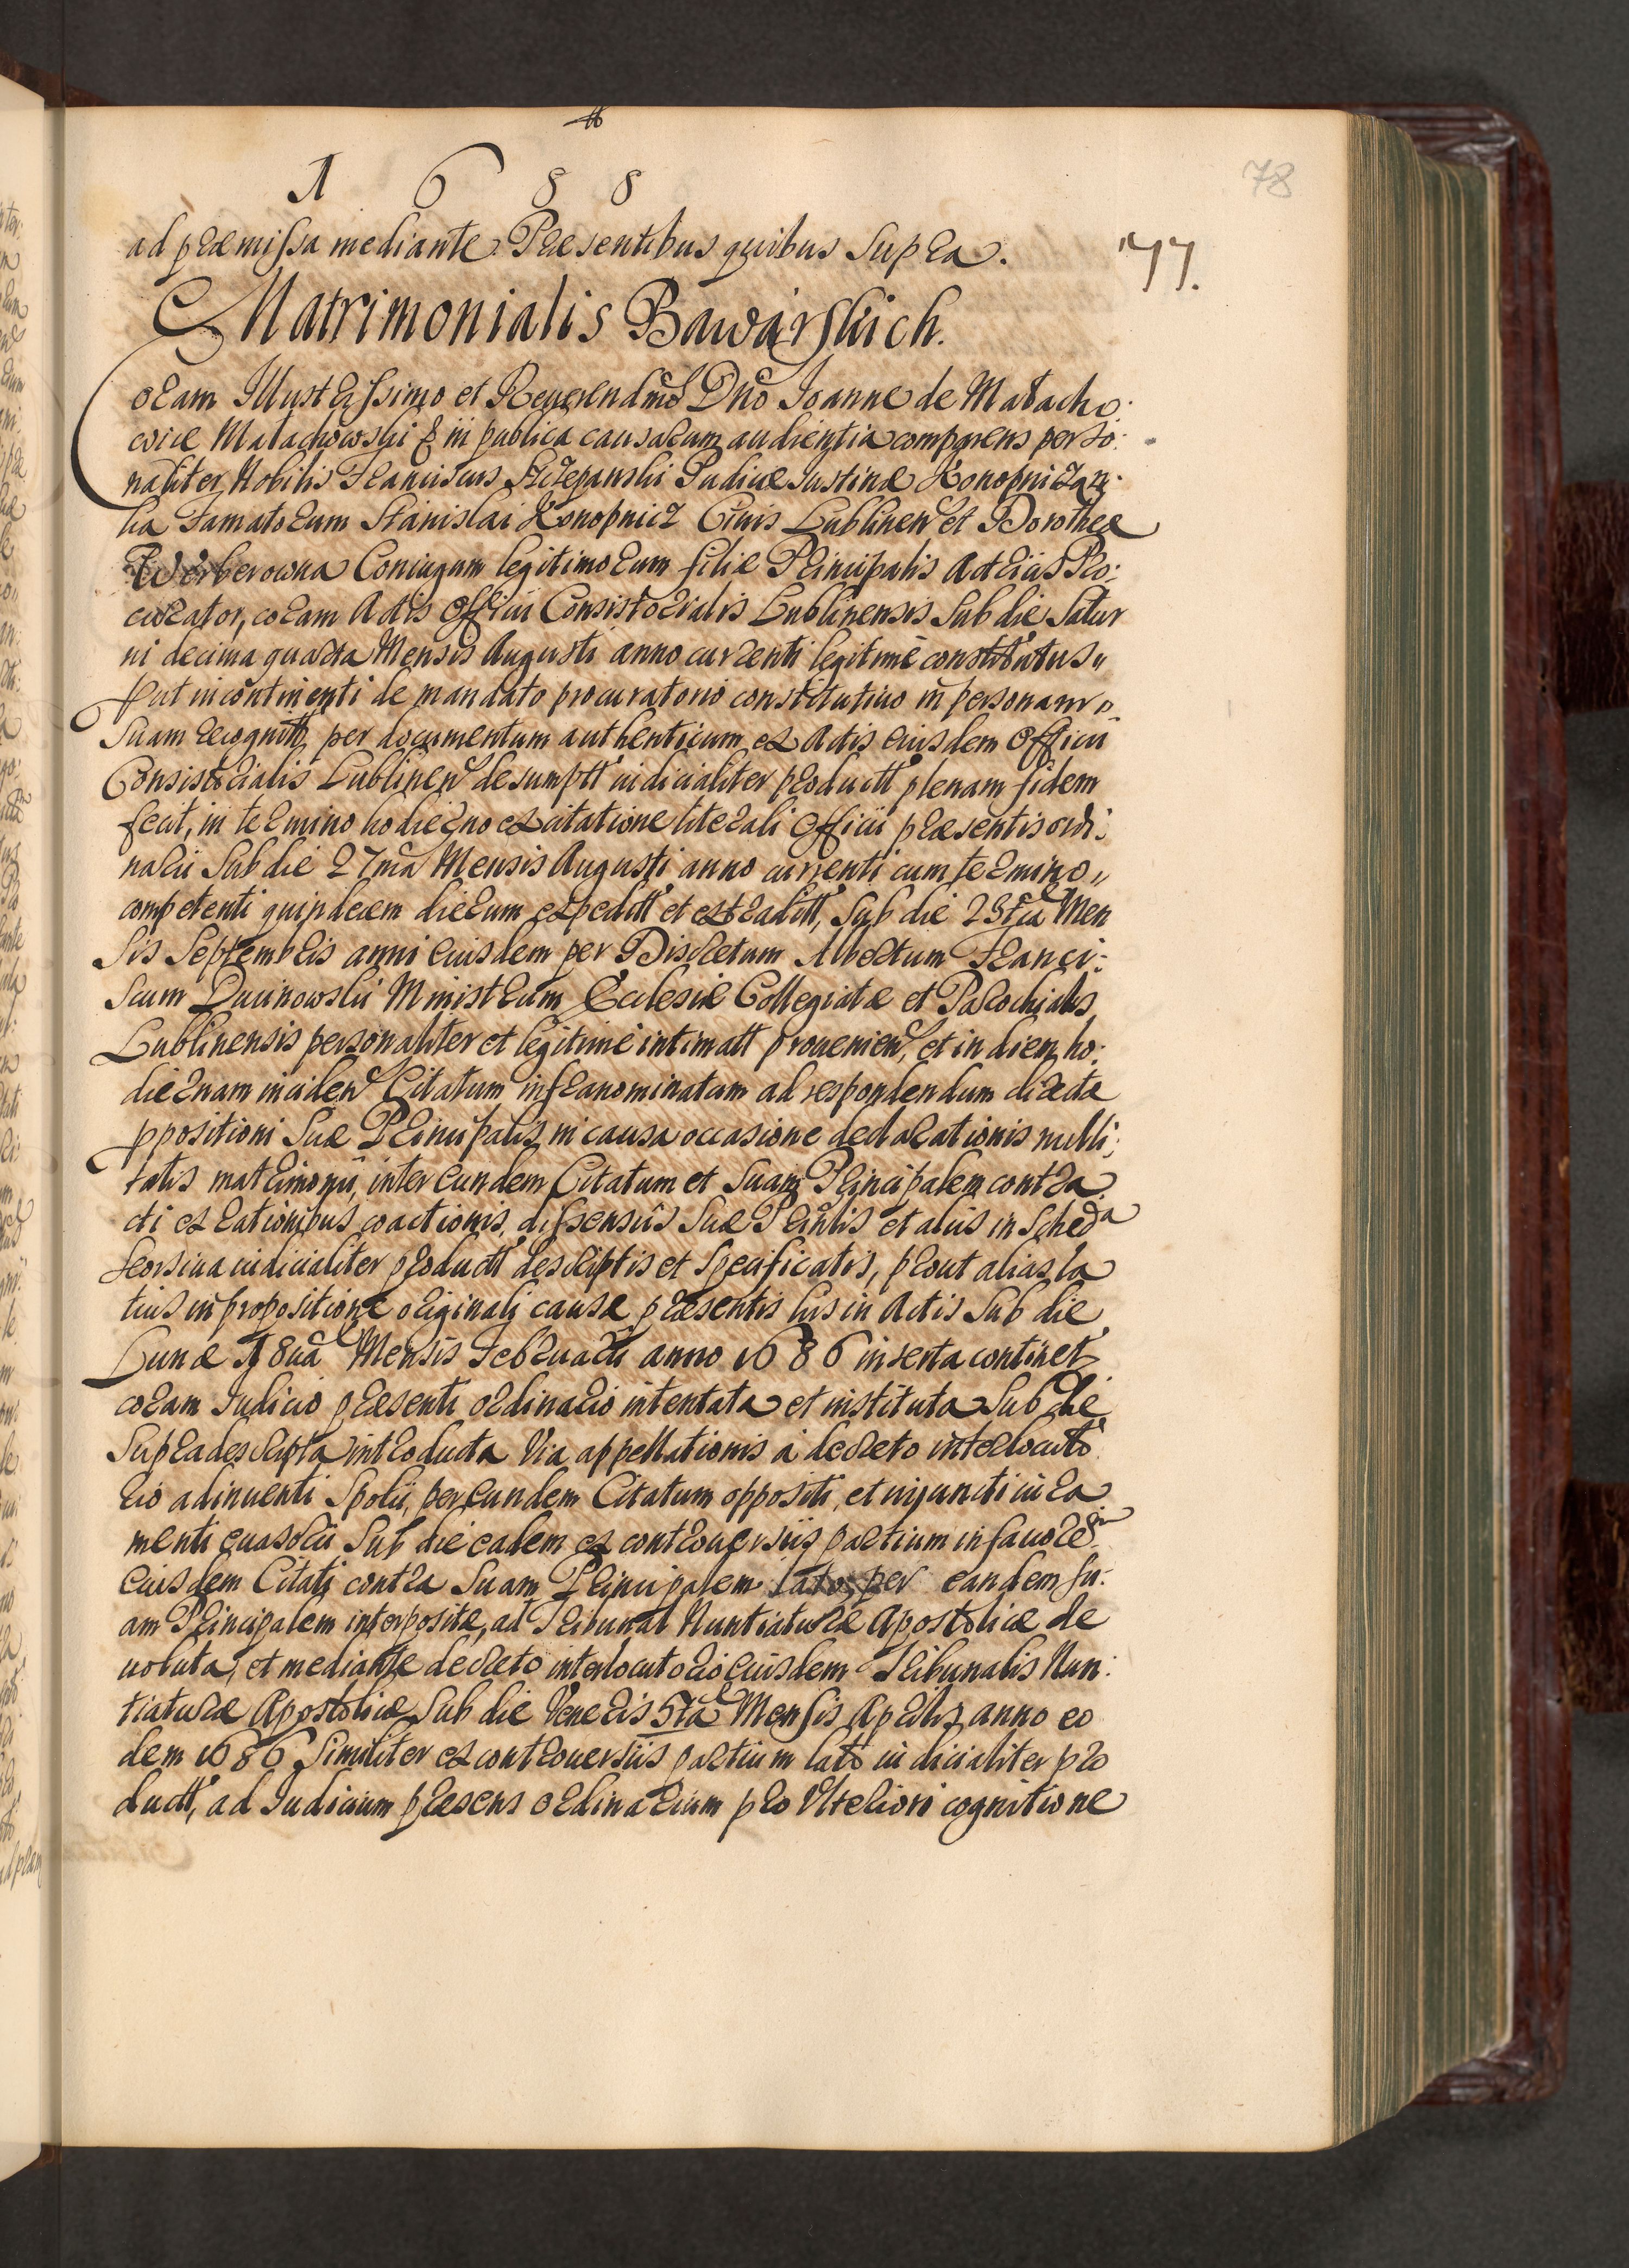 1 6 8 8
78
ad præmissa mediante. Præsentibus quibus Supra.
77.
Matrimonialis Bawarskich.
Coram Illustrissimo et Reuerendmo Dno Joanne de Małacho:
wice Małachowski & in publica causarum audientia comparens perso:
naliter Nobilis Franciscus Szczepanski Pudicæ Justinæ Konopniczan:
ka Famatorum Stanislai Konopnicz Ciuis Lublinen et Dorotheæ
Werberowna Coniugum legitimorum filiæ Principalis Actricis Pro:
curator, coram Actis Officii Consistorialis Lublinensis Sub die Satur
ni decima quarta Mensis Augusti anno currenti legitimè constitutus,,
put incontinenti de mandato procuratorio constitutiuo in personam
Suam recognitt, per documentum authenticum ex Actis eiusdem Officii
Consistorialis Lublinen desumptt iudicialiter productt plenam fidem
fecit, in termino hodierno ex citatione literali Officii præsentis ordi:
narii Sub die 27ma Mensis Augusti anno currenti cum termino,,
competenti quindecem dierum expeditt et extraditt, Sub die Men
sis Septembris anni eiusdem per Discretum Albertum Franci:
scum Ducinowski Ministrum Ecclesiæ Collegiatæ et Parochialis
Lublinensis personaliter et legitimè intimatt prouenien, et in diem ho:
diernam inciden Citatum infranominatum ad respondendum directæ
ppositioni Suæ Principalis in causa occasione declarationis nulli:
tatis matrimonii, inter eundem Citatum et Suam Principalem contra
cti ex rationibus coactionis, dissensûs Suæ Prinlis et aliis in Scheda
seorsiua iudicialiter productt descriptis et Specificatis, prout alias la
tius in propositione originali causæ præsentis his in Actis Sub die
Lunæ 18ua Mensis Februarii anno 1686 inserta continet,
coram Iudicio præsenti ordinario intentata et instituta Sub die
Supradescripta introducta Via appellationis à decreto interlocuto
rio adinuenti Spolii, per eundem Citatum oppositi, et iniuncti iura
menti euasorii Sub die eadem ex controuersiis partium in fauorem
eiusdem Citati contra Suam Principalem lato, per eandem Su:
am Principalem interpositæ, ad Tribunal Nuntiaturæ Apostolicæ de
uoluta, et mediante decreto interlocutorio eiusdem Tribunalis Nun:
tiaturæ Apostolicæ Sub die Veneris 5ta Mensis Aprilis anno eo
dem 1686 Similiter ex controuersiis partium lato iudicialiter pro
ductt, ad Iudicium præsens ordinarium pro Vlteriori cognitione